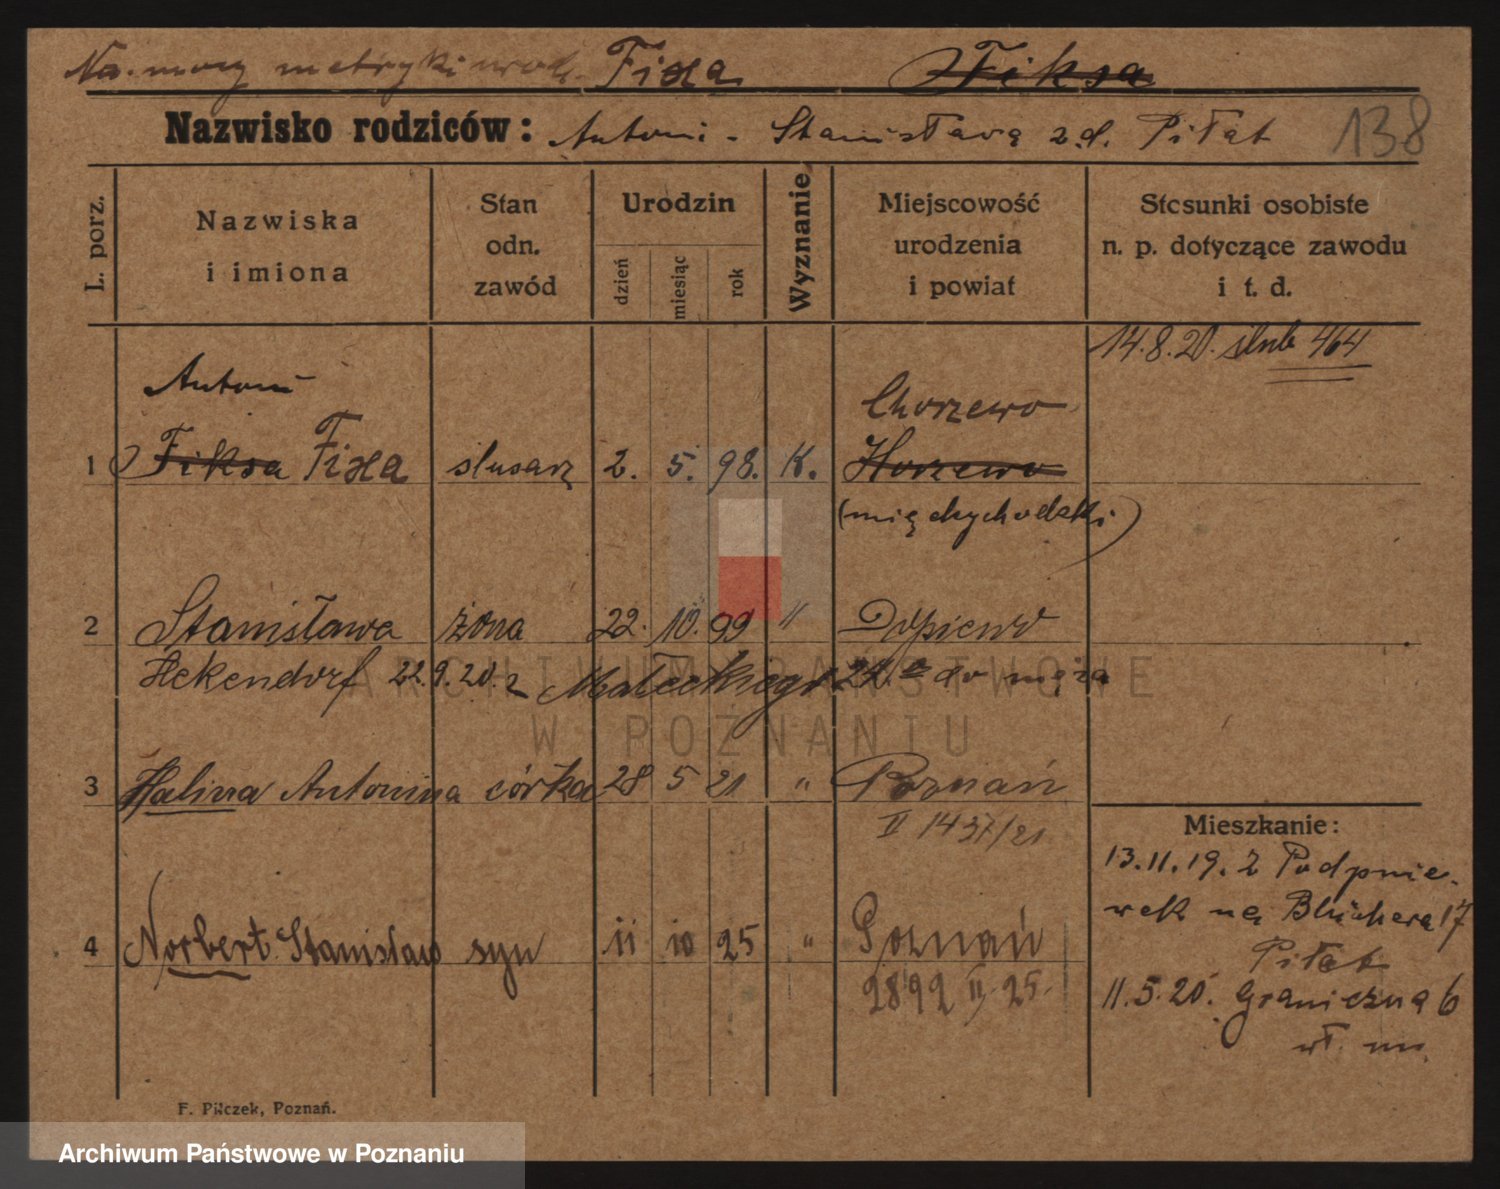 Na mocy metryki urodz. Fixa Fiksa
Nazwisko rodziców: Antoni - Stanisławą z d. Piłat 138
L. porz.
Nazwiska
i imiona
Stan
odn.
zawód
Urodzin
dzień
miesiąc
rok
Wyznanie
Miejscowość
urodzenia
i powiat
Stosunki osobiste
n. p. dotyczące zawodu
i t. d.
14.8.20. ślub 464
Antoni Chorzewo
1 Fiksa Fixa slusarz 2. 5. 98. K. Horzewo
(międzychodzki)
2 Stanisława żona 22. 10. 99 " Dopiewo
Hekendorf 22.9.20. z Małeckiego 22. do męża
3 Halina Antonina córka 28 5 21 " Poznań
II 1437/21
4 Norbert Stanisław syn 11 10 25 " Poznań
2892 II 25.
Mieszkanie:
13.11.19. z Podpnie-
wek na Blüchera 17
Piłat
11.5.20. Graniczna 6
wł. m.
F. Pilczek, Poznań.
ARCHIWUM PAŃSTWOWE
W POZNANIU
Archiwum Państwowe w Poznaniu